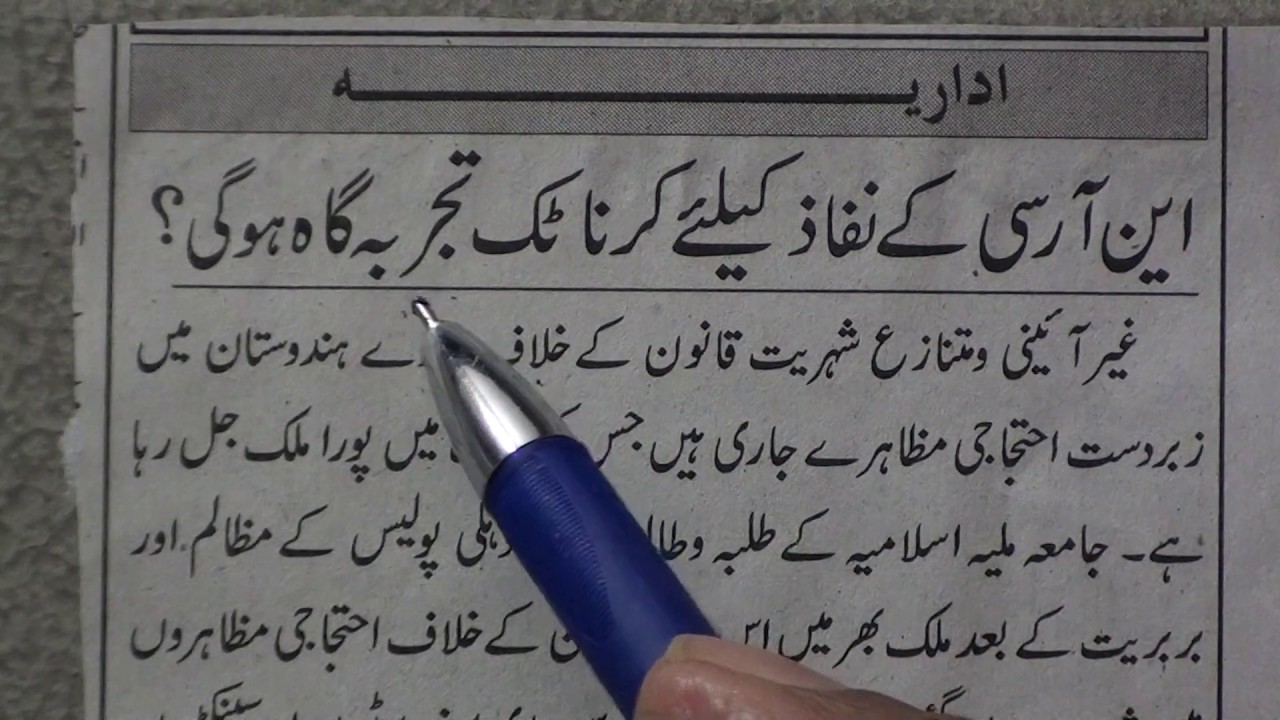 اداریہ
این آر سی کے نفاذ کیلئے کرناٹک تجربہ گاہ ہوگی؟
غیر آئینی ومتنازع شہریت قانون کے خلاف ہندوستان میں
زبردست احتجاجی مظاہرے جاری ہیں جس میں پورا ملک جل رہا
ہے۔ جامعہ ملیہ اسلامیہ کے طلبہ پولیس کے مظالم اور
بربریت کے بعد ملک بھر میں اس کے خلاف احتجاجی مظاہروں